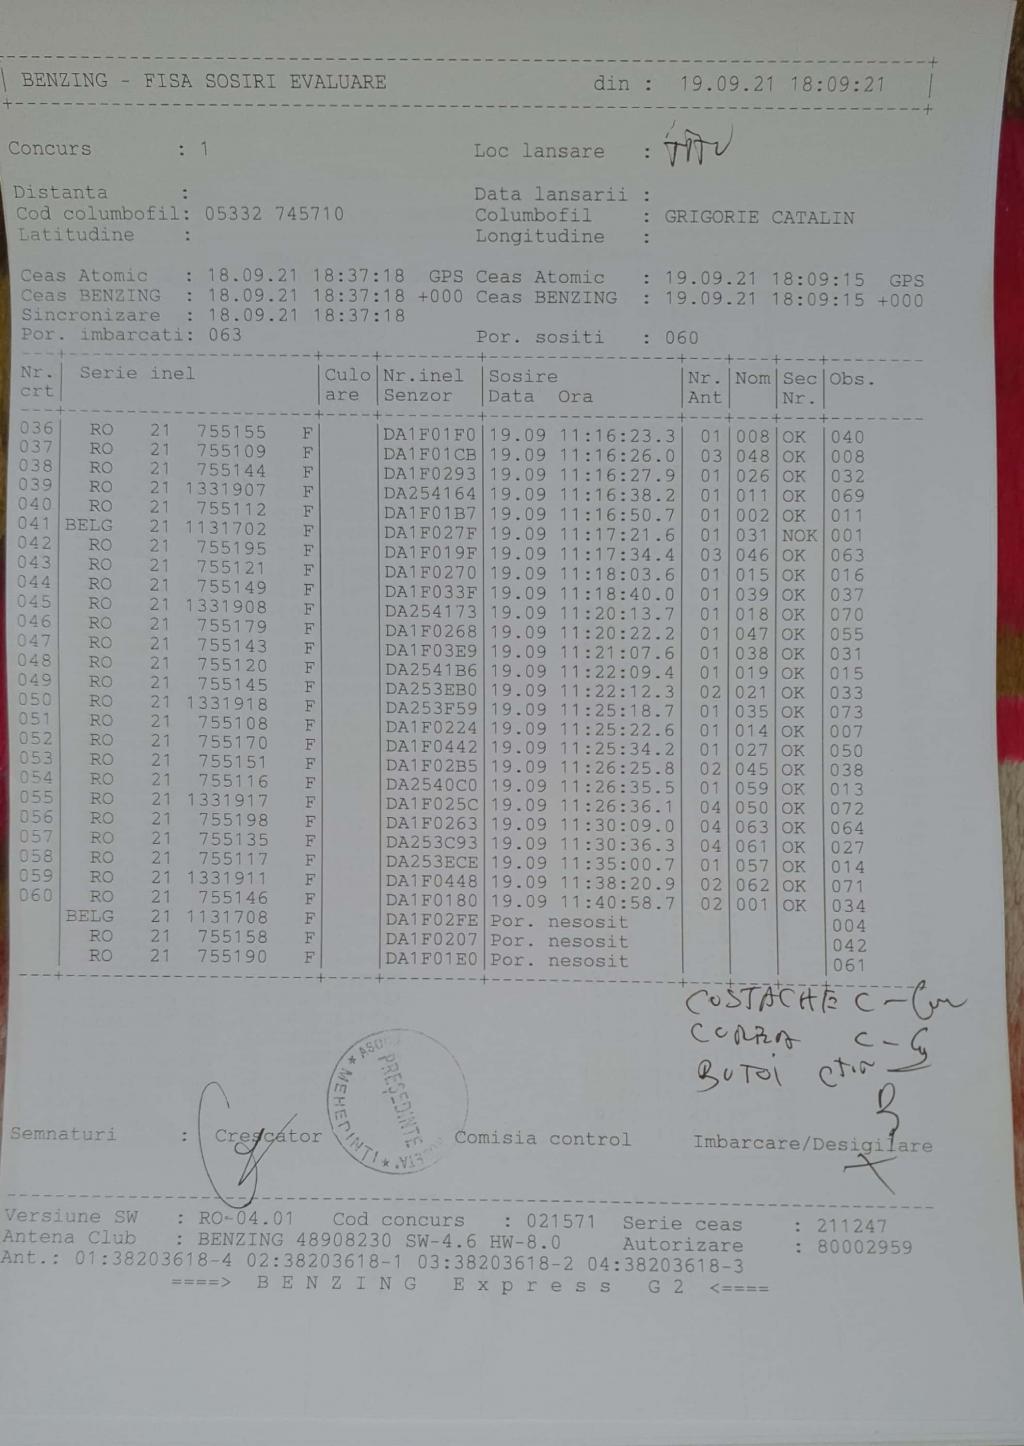 BENZING - FISA SOSIRI EVALUARE din : 19.09.21 18:09:21
Concurs : 1 Loc lansare :
Distanta : Data lansarii :
Cod columbofil: 05332 745710 Columbofil : GRIGORIE CATALIN
Latitudine : Longitudine :
Ceas Atomic : 18.09.21 18:37:18 GPS Ceas Atomic : 19.09.21 18:09:15 GPS
Ceas BENZING : 18.09.21 18:37:18 +000 Ceas BENZING : 19.09.21 18:09:15 +000
Sincronizare : 18.09.21 18:37:18
Por. imbarcati: 063 Por. sositi : 060
Nr. Serie inel Culo Nr.inel Sosire Nr. Nom Sec Obs.
crt are Senzor Data Ora Ant Nr.
036 RO 21 755155 F DA1F01F0 19.09 11:16:23.3 01 008 OK 040
037 RO 21 755109 F DA1F01CB 19.09 11:16:26.0 03 048 OK 008
038 RO 21 755144 F DA1F0293 19.09 11:16:27.9 01 026 OK 032
039 RO 21 1331907 F DA254164 19.09 11:16:38.2 01 011 OK 069
040 RO 21 755112 F DA1F01B7 19.09 11:16:50.7 01 002 OK 011
041 BELG 21 1131702 F DA1F027F 19.09 11:17:21.6 01 031 NOK 001
042 RO 21 755195 F DA1F019F 19.09 11:17:34.4 03 046 OK 063
043 RO 21 755121 F DA1F0270 19.09 11:18:03.6 01 015 OK 016
044 RO 21 755149 F DA1F033F 19.09 11:18:40.0 01 039 OK 037
045 RO 21 1331908 F DA254173 19.09 11:20:13.7 01 018 OK 070
046 RO 21 755179 F DA1F0268 19.09 11:20:22.2 01 047 OK 055
047 RO 21 755143 F DA1F03E9 19.09 11:21:07.6 01 038 OK 031
048 RO 21 755120 F DA2541B6 19.09 11:22:09.4 01 019 OK 015
049 RO 21 755145 F DA253EB0 19.09 11:22:12.3 02 021 OK 033
050 RO 21 1331918 F DA253F59 19.09 11:25:18.7 01 035 OK 073
051 RO 21 755108 F DA1F0224 19.09 11:25:22.6 01 014 OK 007
052 RO 21 755170 F DA1F0442 19.09 11:25:34.2 01 027 OK 050
053 RO 21 755151 F DA1F02B5 19.09 11:26:25.8 02 045 OK 038
054 RO 21 755116 F DA2540C0 19.09 11:26:35.5 01 059 OK 013
055 RO 21 1331917 F DA1F025C 19.09 11:26:36.1 04 050 OK 072
056 RO 21 755198 F DA1F0263 19.09 11:30:09.0 04 063 OK 064
057 RO 21 755135 F DA253C93 19.09 11:30:36.3 04 061 OK 027
058 RO 21 755117 F DA253ECE 19.09 11:35:00.7 01 057 OK 014
059 RO 21 1331911 F DA1F0448 19.09 11:38:20.9 02 062 OK 071
060 RO 21 755146 F DA1F0180 19.09 11:40:58.7 02 001 OK 034
BELG 21 1131708 F DA1F02FE Por. nesosit 004
RO 21 755158 F DA1F0207 Por. nesosit 042
RO 21 755190 F DA1F01E0 Por. nesosit 061
COSTACHE C -
C -
BUTOI
PREȘEDINTE
MEHEDINȚI
Semnaturi : Crescator Comisia control Imbarcare/Desigilare
Versiune SW : RO-04.01 Cod concurs : 021571 Serie ceas : 211247
Antena Club : BENZING 48908230 SW-4.6 HW-8.0 Autorizare : 80002959
Ant.: 01:38203618-4 02:38203618-1 03:38203618-2 04:38203618-3
====> B E N Z I N G E x p r e s s G 2 <====